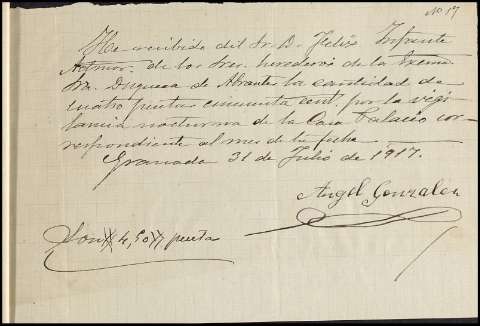 No 17
He recibido del Sr. D. Felix Infante
Admor. de los Sres. herederos de la Excma.
Sra. Duquesa de Abrantes la cantidad de
cuatro pesetas cincuenta cent. por la vigi
lancia nocturna de la Casa Palacio cor-
respondiente al mes de la fecha.
Granada 31 de Julio de 1917.
Angel Gonzalez
Son # 4,50 # pesetas